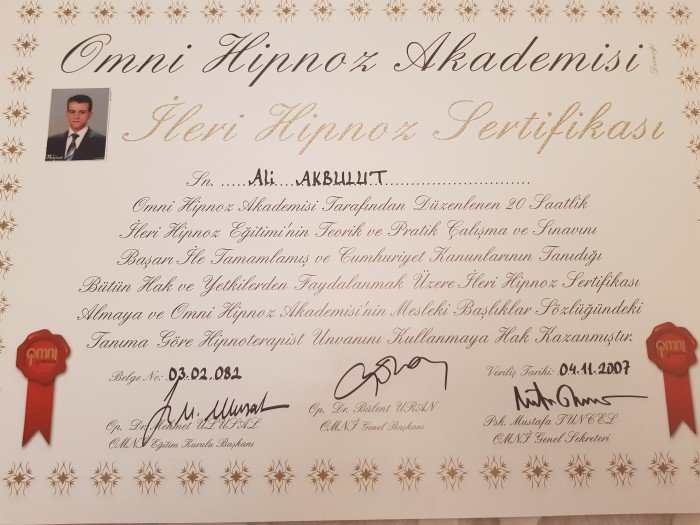 Omni Hipnoz Akademisi
İleri Hipnoz Sertifikası
Sn. Ali AKBULUT
Omni Hipnoz Akademisi Tarafından Düzenlenen 20 Saatlik
İleri Hipnoz Eğitimi'nin Teorik ve Pratik Çalışma ve Sınavını
Başarı İle Tamamlamış ve Cumhuriyet Kanunlarının Tanıdığı
Bütün Hak ve Yetkilerden Faydalanmak Üzere İleri Hipnoz Sertifikası
Almaya ve Omni Hipnoz Akademisi'nin Mesleki Başlıklar Sözlüğündeki
Tanıma Göre Hipnoterapist Unvanını Kullanmaya Hak Kazanmıştır.
omni
omni
Belge No: 03.02.082
Veriliş Tarihi: 04.11.2007
Op. Dr. Mehmet ULUSAL
OMNİ Eğitim Kurulu Başkanı
Op. Dr. Bülent URAN
OMNİ Genel Başkanı
Psk. Mustafa TUNCEL
OMNİ Genel Sekreteri